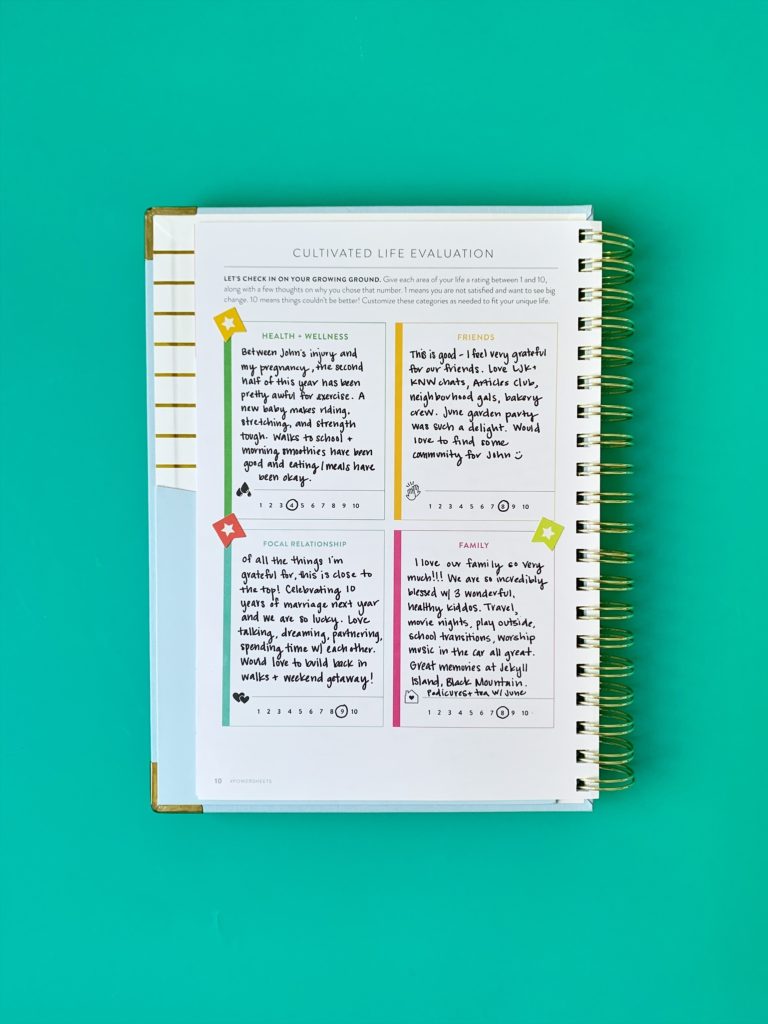 CULTIVATED LIFE EVALUATION
LET'S CHECK IN ON YOUR GROWING GROUND. Give each area of your life a rating between 1 and 10,
along with a few thoughts on why you chose that number. 1 means you are not satisfied and want to see big
change. 10 means things couldn't be better! Customize these categories as needed to fit your unique life.
HEALTH + WELLNESS
Between John's injury and
my pregnancy, the second
half of this year has been
pretty awful for exercise. A
new baby makes riding,
stretching, and strength
tough. Walks to school +
morning smoothies have been
good and eating/meals have
been okay.
1 2 3 4 5 6 7 8 9 10
FRIENDS
This is good - I feel very grateful
for our friends. Love WK+
KNW chats, Articles Club,
neighborhood gals, bakery
crew. June garden party
was such a delight. Would
love to find some
community for John
1 2 3 4 5 6 7 8 9 10
FOCAL RELATIONSHIP
Of all the things I'm
grateful for, this is close to
the top! Celebrating 10
years of marriage next year
and we are so lucky. Love
talking, dreaming, partnering,
spending time w/ each other.
Would love to build back in
walks + weekend getaway!
1 2 3 4 5 6 7 8 9 10
FAMILY
I love our family so very
much!!! We are so incredibly
blessed w/ 3 wonderful,
healthy kiddos. Travel,
movie nights, play outside,
school transitions, worship
music in the car all great.
Great memories at Jekyll
Island, Black Mountain.
Pedicures + tea w/ June
1 2 3 4 5 6 7 8 9 10
10 #POWERSHEETS